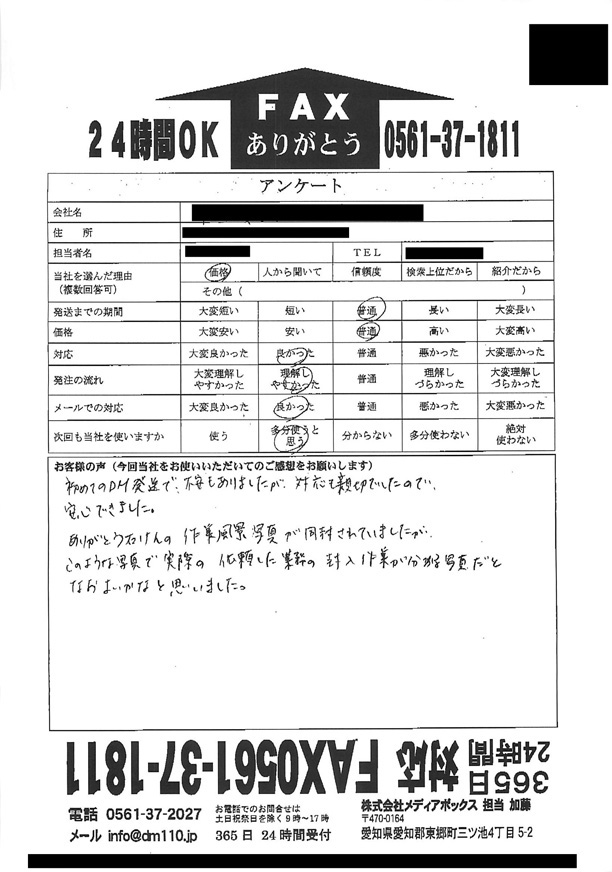 FAX
ありがとう
24時間OK
0561-37-1811
アンケート
会社名
住 所
担当者名 TEL
当社を選んだ理由 (複数回答可) 価格 人から聞いて 信頼度 検索上位だから 紹介だから
その他( )
発送までの期間 大変短い 短い 普通 長い 大変長い
価格 大変安い 安い 普通 高い 大変高い
対応 大変良かった 良かった 普通 悪かった 大変悪かった
発注の流れ 大変理解しやすかった 理解しやすかった 普通 理解しづらかった 大変理解しづらかった
メールでの対応 大変良かった 良かった 普通 悪かった 大変悪かった
次回も当社を使いますか 使う 多分使うと思う 分からない 多分使わない 絶対使わない
お客様の声(今回当社をお使いいただいてのご感想をお願いします)
初めてのDM発送で、不安もありましたが、対応も親切でしたので、
安心できました。
ありがとう石けんの作業風景写真が同封されていましたが、
このような写真で実際の依頼した業務の封入作業が分かる写真だと
なおよいかなと思いました。
365日 24時間 対応 FAX0561-37-1811
電話 0561-37-2027
お電話でのお問合せは
土日祝祭日を除く9時〜17時
メール info@dm110.jp 365日 24時間受付
株式会社メディアボックス 担当 加藤
〒470-0164
愛知県愛知郡東郷町三ツ池4丁目5-2